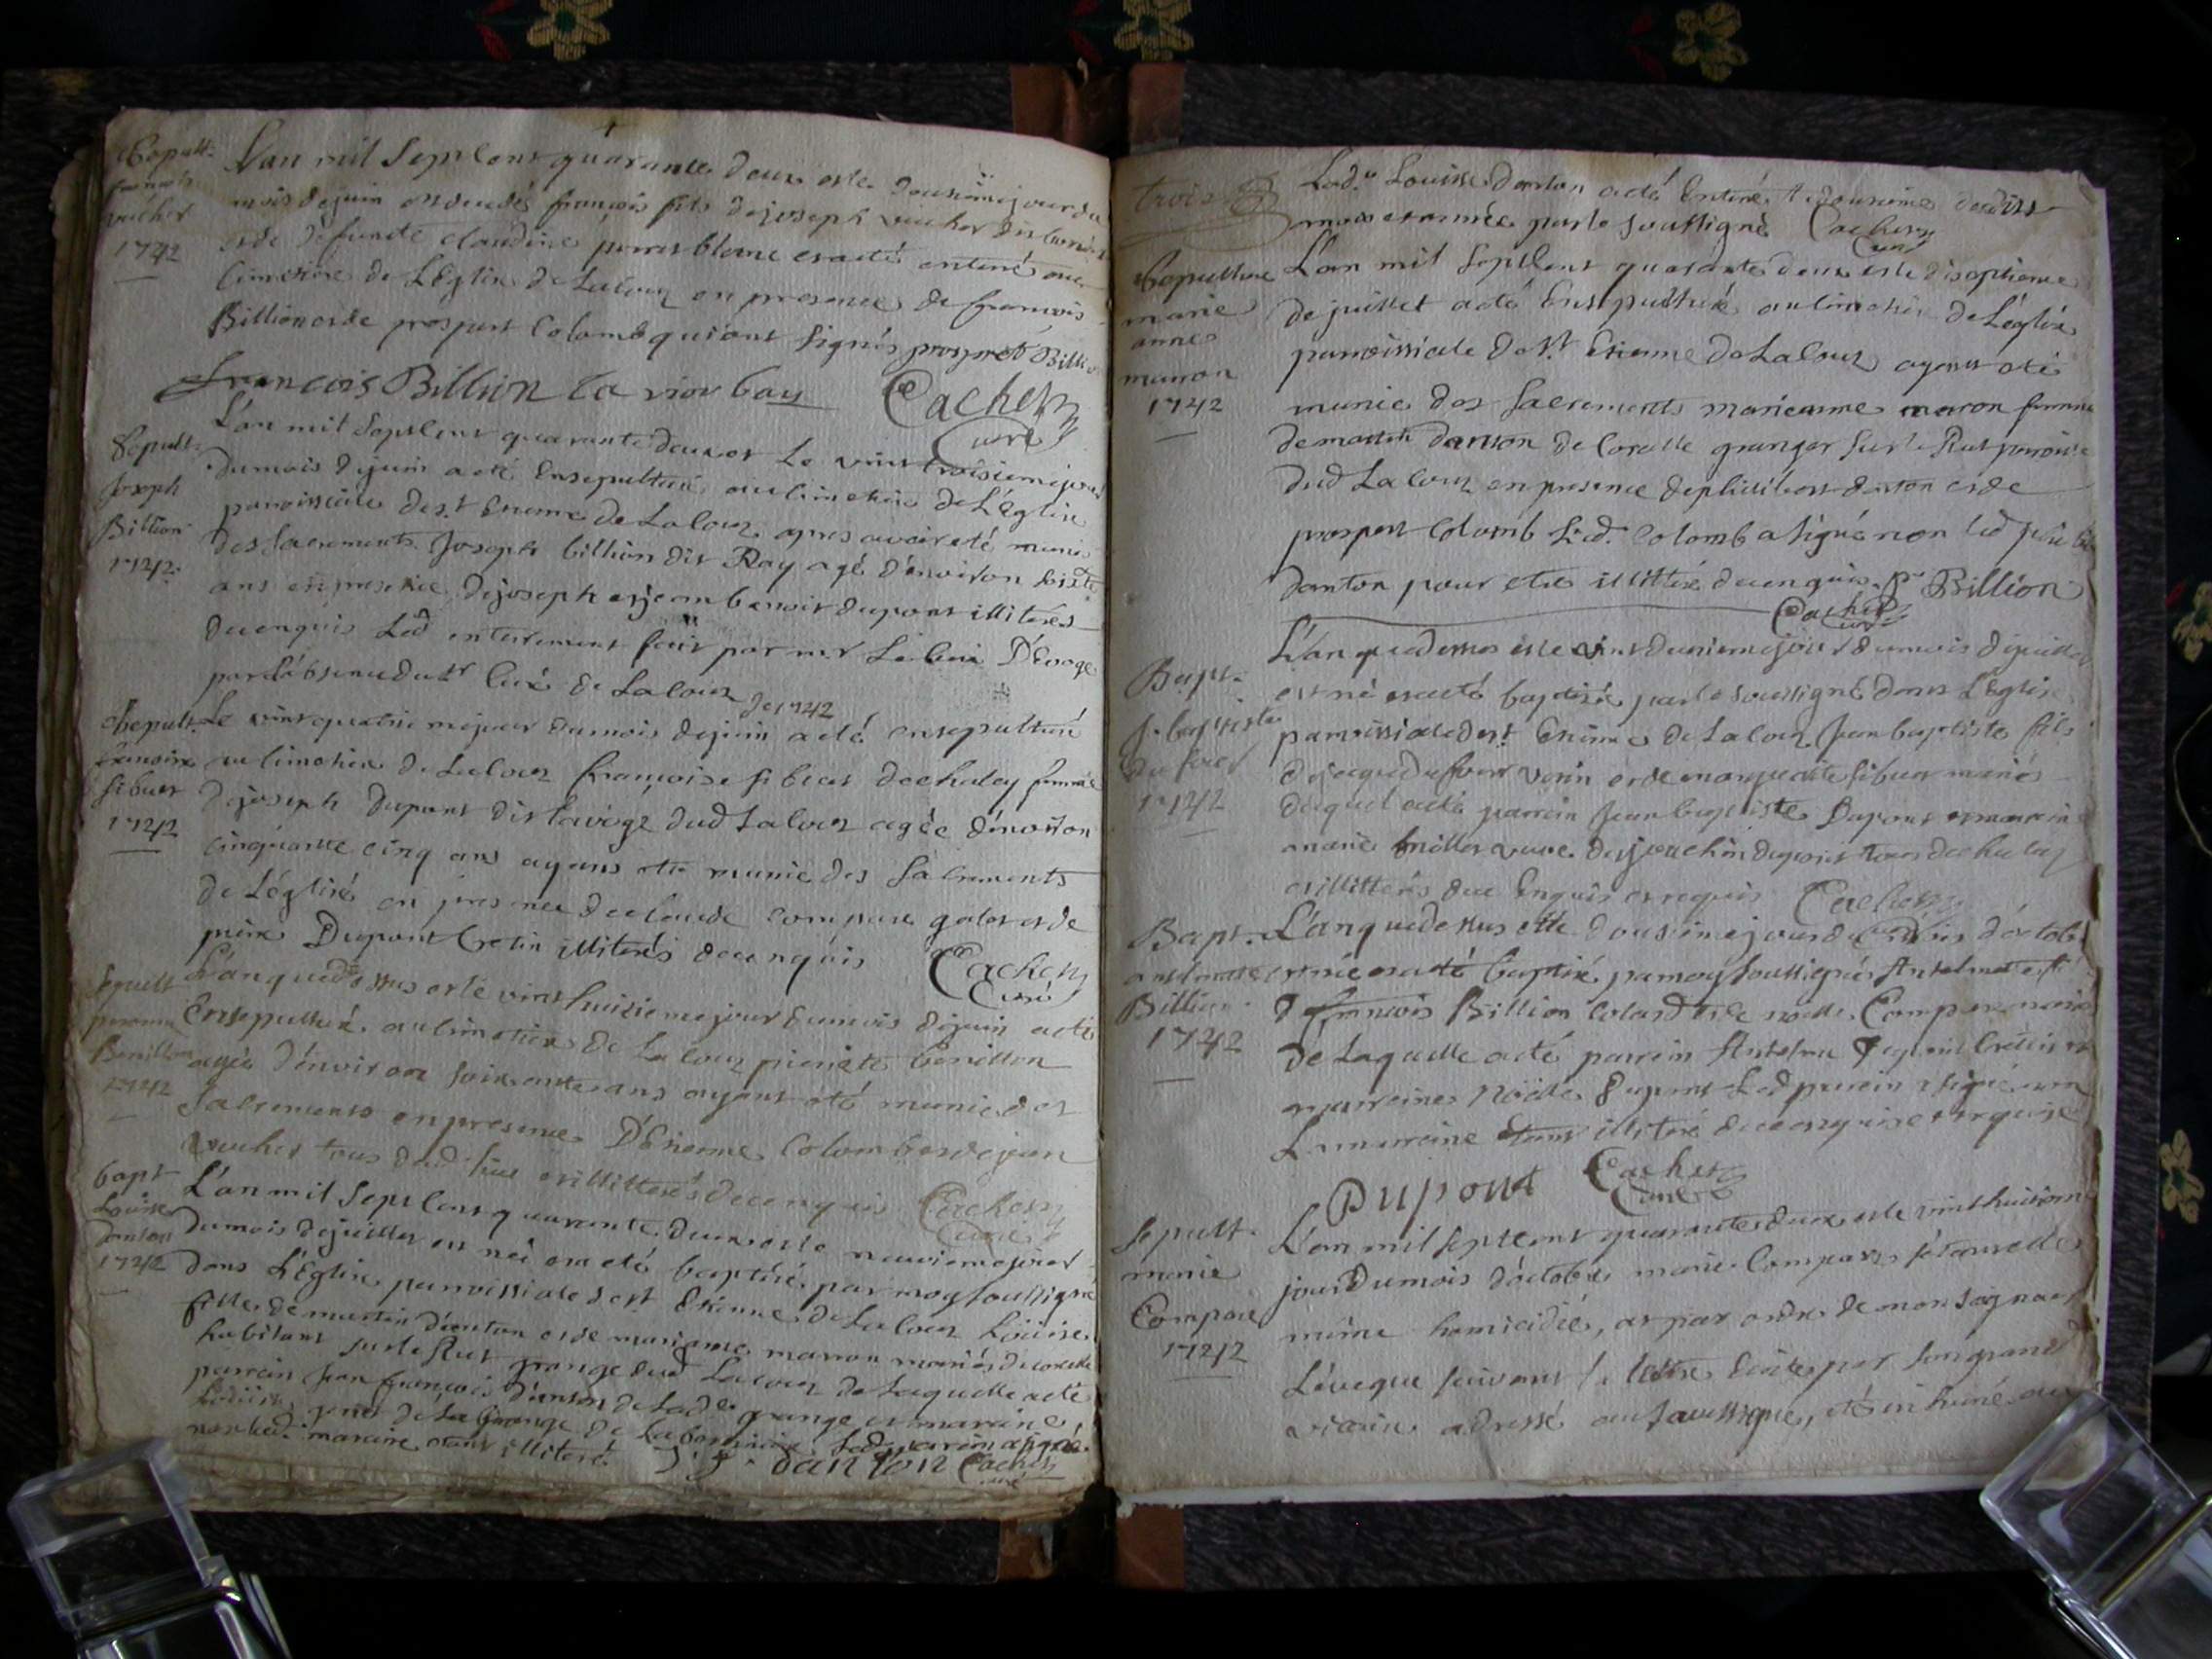 Sepult.
françois
vucher
1742
L'an mil sept cent quarante deux et le douziemejour du
mois de juin est decedé françois fils de joseph vucher dit
et de defuncte claudine poncet blanc et a eté enterré au
cimetiere de L'Eglise de Lalouz en presence de francois
Billion et de prospert Colomb qui ont signés prospret Billi
francois Billion la viou bay Cachet
curé
Sepult.
Joseph
Billion
1742.
L'an mil sept cent quarante deux et le vint troisieme jour
du mois de juin a eté Ensepulturé au cimetiere de L'Eglise
paroissiale de st Etienne de Lalouz apres avoir eté munis
des sacrements Joseph billion dit Ray agé d'environ
ans en presence de joseph et jean benoit dupont illiterés
de ce enquis Led enterrement fait par mr
par l'absence du sr Curé de Lalouz
de 1742
Sepult.
francoise
sibuet
1742
Le vint quatrie me jour du mois de juin a eté ensepulturé
au cimetiere de Lalouz françoise sibuet de chaley femme
de joseph Dupont dit lavige dud Lalouz agée d'environ
cinquante cinq ans ayant eté munie des Sacrements
de L'église en presence de claude compare galot et de
pierre Dupont Cretin illiterés de ce enquis Cachet
Curé
Sepult
pierrette
Benillon
1742
L'an que dessus et le vint huitieme jour du mois de juin a eté
Ensepulturé au cimetiere de Lalouz pierrete benillon
agée d'environ soixante ans ayant eté munie des
Sacrements en presence D'Etienne Colomb et de jean
vucher tous dud lieu et illitterés de ce enquis Cachet
Curé
bapt
Louise
danton
1742
L'an mil sept cent quarante deux et le neuvieme jour
du mois de juillet est née et a eté baptisé par moy soussigné
dans L'Eglise paroissiale de st Etienne de Lalouz Loüise
fille de martin d'anton et de marianne maron mariés de coralle
habitant sur le Rut grange dud Lalouz de Laquelle a eté
parrain jean françois d'anton de Lade grange et maraine
Loüise de La grange de Led parrain a signé
non lad. maraine etant illiteré J. f. danton Cachet
curé
trois
Lad.te Louise danton a eté Enteré Le dousieme desdits
mois et année par le soussigné Cachet
curé
Sepulture
marie
anne
maron
1742
L'an mil Sept Cent quarante deux et le diseptieme
de juillet a eté Ensepulturé au cimetier de L'église
paroissiale de St Etienne de Lalouz ayant eté
munie des sacrements marieanne maron femme
de martin danton de Coralle granger sur le Rut paroisse
dud Lalouz en presence de philibert danton et de
prospert Colomb Led. Colomb a signé non led
danton pour etre illittéré de ce enquis. pr Billion
Cachet
curé
Bapt.
j. baptiste
dufour
1742
L'an que dessus et le vint deuxieme jour du mois de juillet
est né et a eté baptisé par le soussigné dans L'Eglise
paroissiale de st Etienne de Lalouz Jean baptiste fils
de jaque dufour verin et de marguerite sibuet mariés
duquel a eté parrain Jean baptiste Dupont et marraine
marie millet veuve de joachin dupont tous de chaley
et illitterés de ce Enquis et requis Cachet
Bapt.
antelmate
Billion
1742
L'an que dessus et le dousieme jour du mois d'octob
et née et a eté baptisé par moy soussigné Antelmate
de francois Billion Colard et de noelle Compare mariés
de Laquelle a eté parrain Antelme Dupont Cretin et
marreine noéle Dupont Led parrein a signé non
La marreine étant illiteré de ce enquise et requise
Dupont Cachet
curé
Sepult.
marie
Compare
1742
L'an mil sept cent quarante deux et le vint huitieme
jour du mois d'octobre marie Compare s'etant elle
même homicidée, at par ordre de monseigneur
L'évêque suivant la lettre Ecrite par son grand
vicaire adressé au soussigné, eté inhumé au